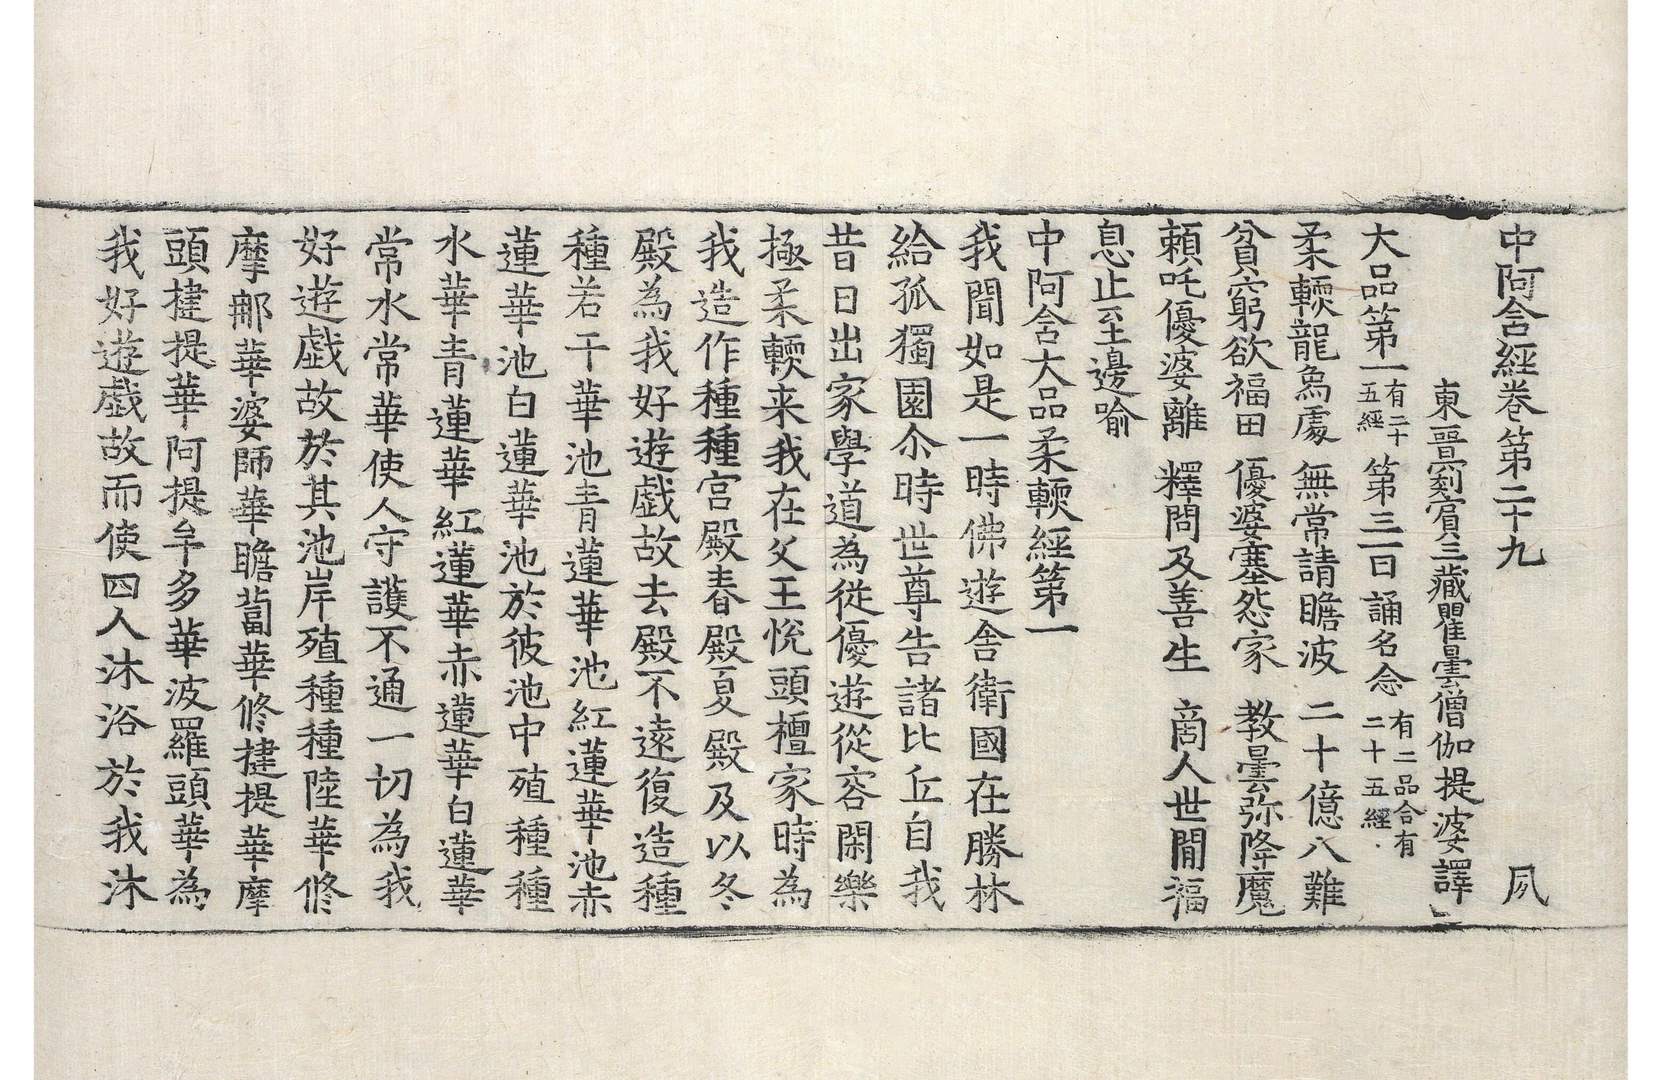 中阿含經卷第二十九　夙
東晉罽賓三藏瞿曇僧伽提婆譯
大品第一有二十五經第三一日誦名念有二品合有二十五經
柔軟龍烏處　無常請瞻波　二十億八難
貧窮欲福田　優婆塞怨家　教曇弥降魔
賴吒優婆離　釋問及善生　商人世間福
息止至邊喻
中阿含大品柔輭經第一
我聞如是一時佛遊舍衛國在勝林
給孤獨園尒時世尊告諸比丘自我
昔日出家學道為從優遊從容閑樂
極柔輭来我在父王悅頭檀家時為
我造作種種宫殿春殿夏殿及以冬
殿為我好遊戲故去殿不遠復造種
種若干華池青蓮華池紅蓮華池赤
蓮華池白蓮華池於彼池中殖種種
水華青蓮華紅蓮華赤蓮華白蓮華
常水常華使人守護不通一切為我
好遊戲故於其池岸殖種種陸華修
摩那華婆師華瞻蔔華修揵提華摩
頭揵提華阿提牟多華波羅頭華為
我好遊戲故而使四人沐浴於我沐